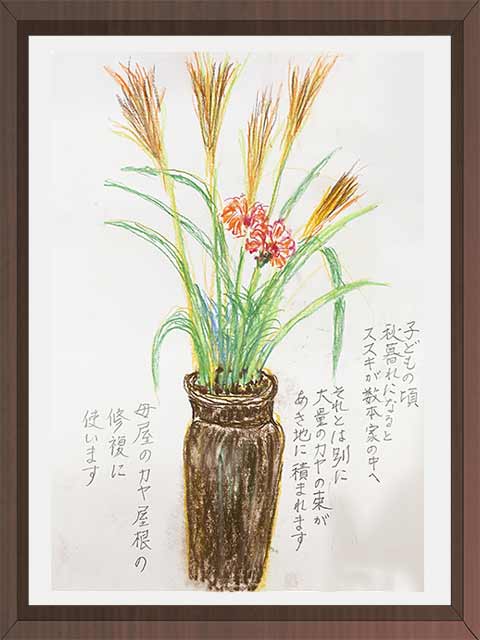 子どもの頃
秋暮れになると
ススキが数本家の中へ
それとは別に
大量のカヤの束が
あき地に積まれます
母屋のカヤ屋根の
修複に
使います